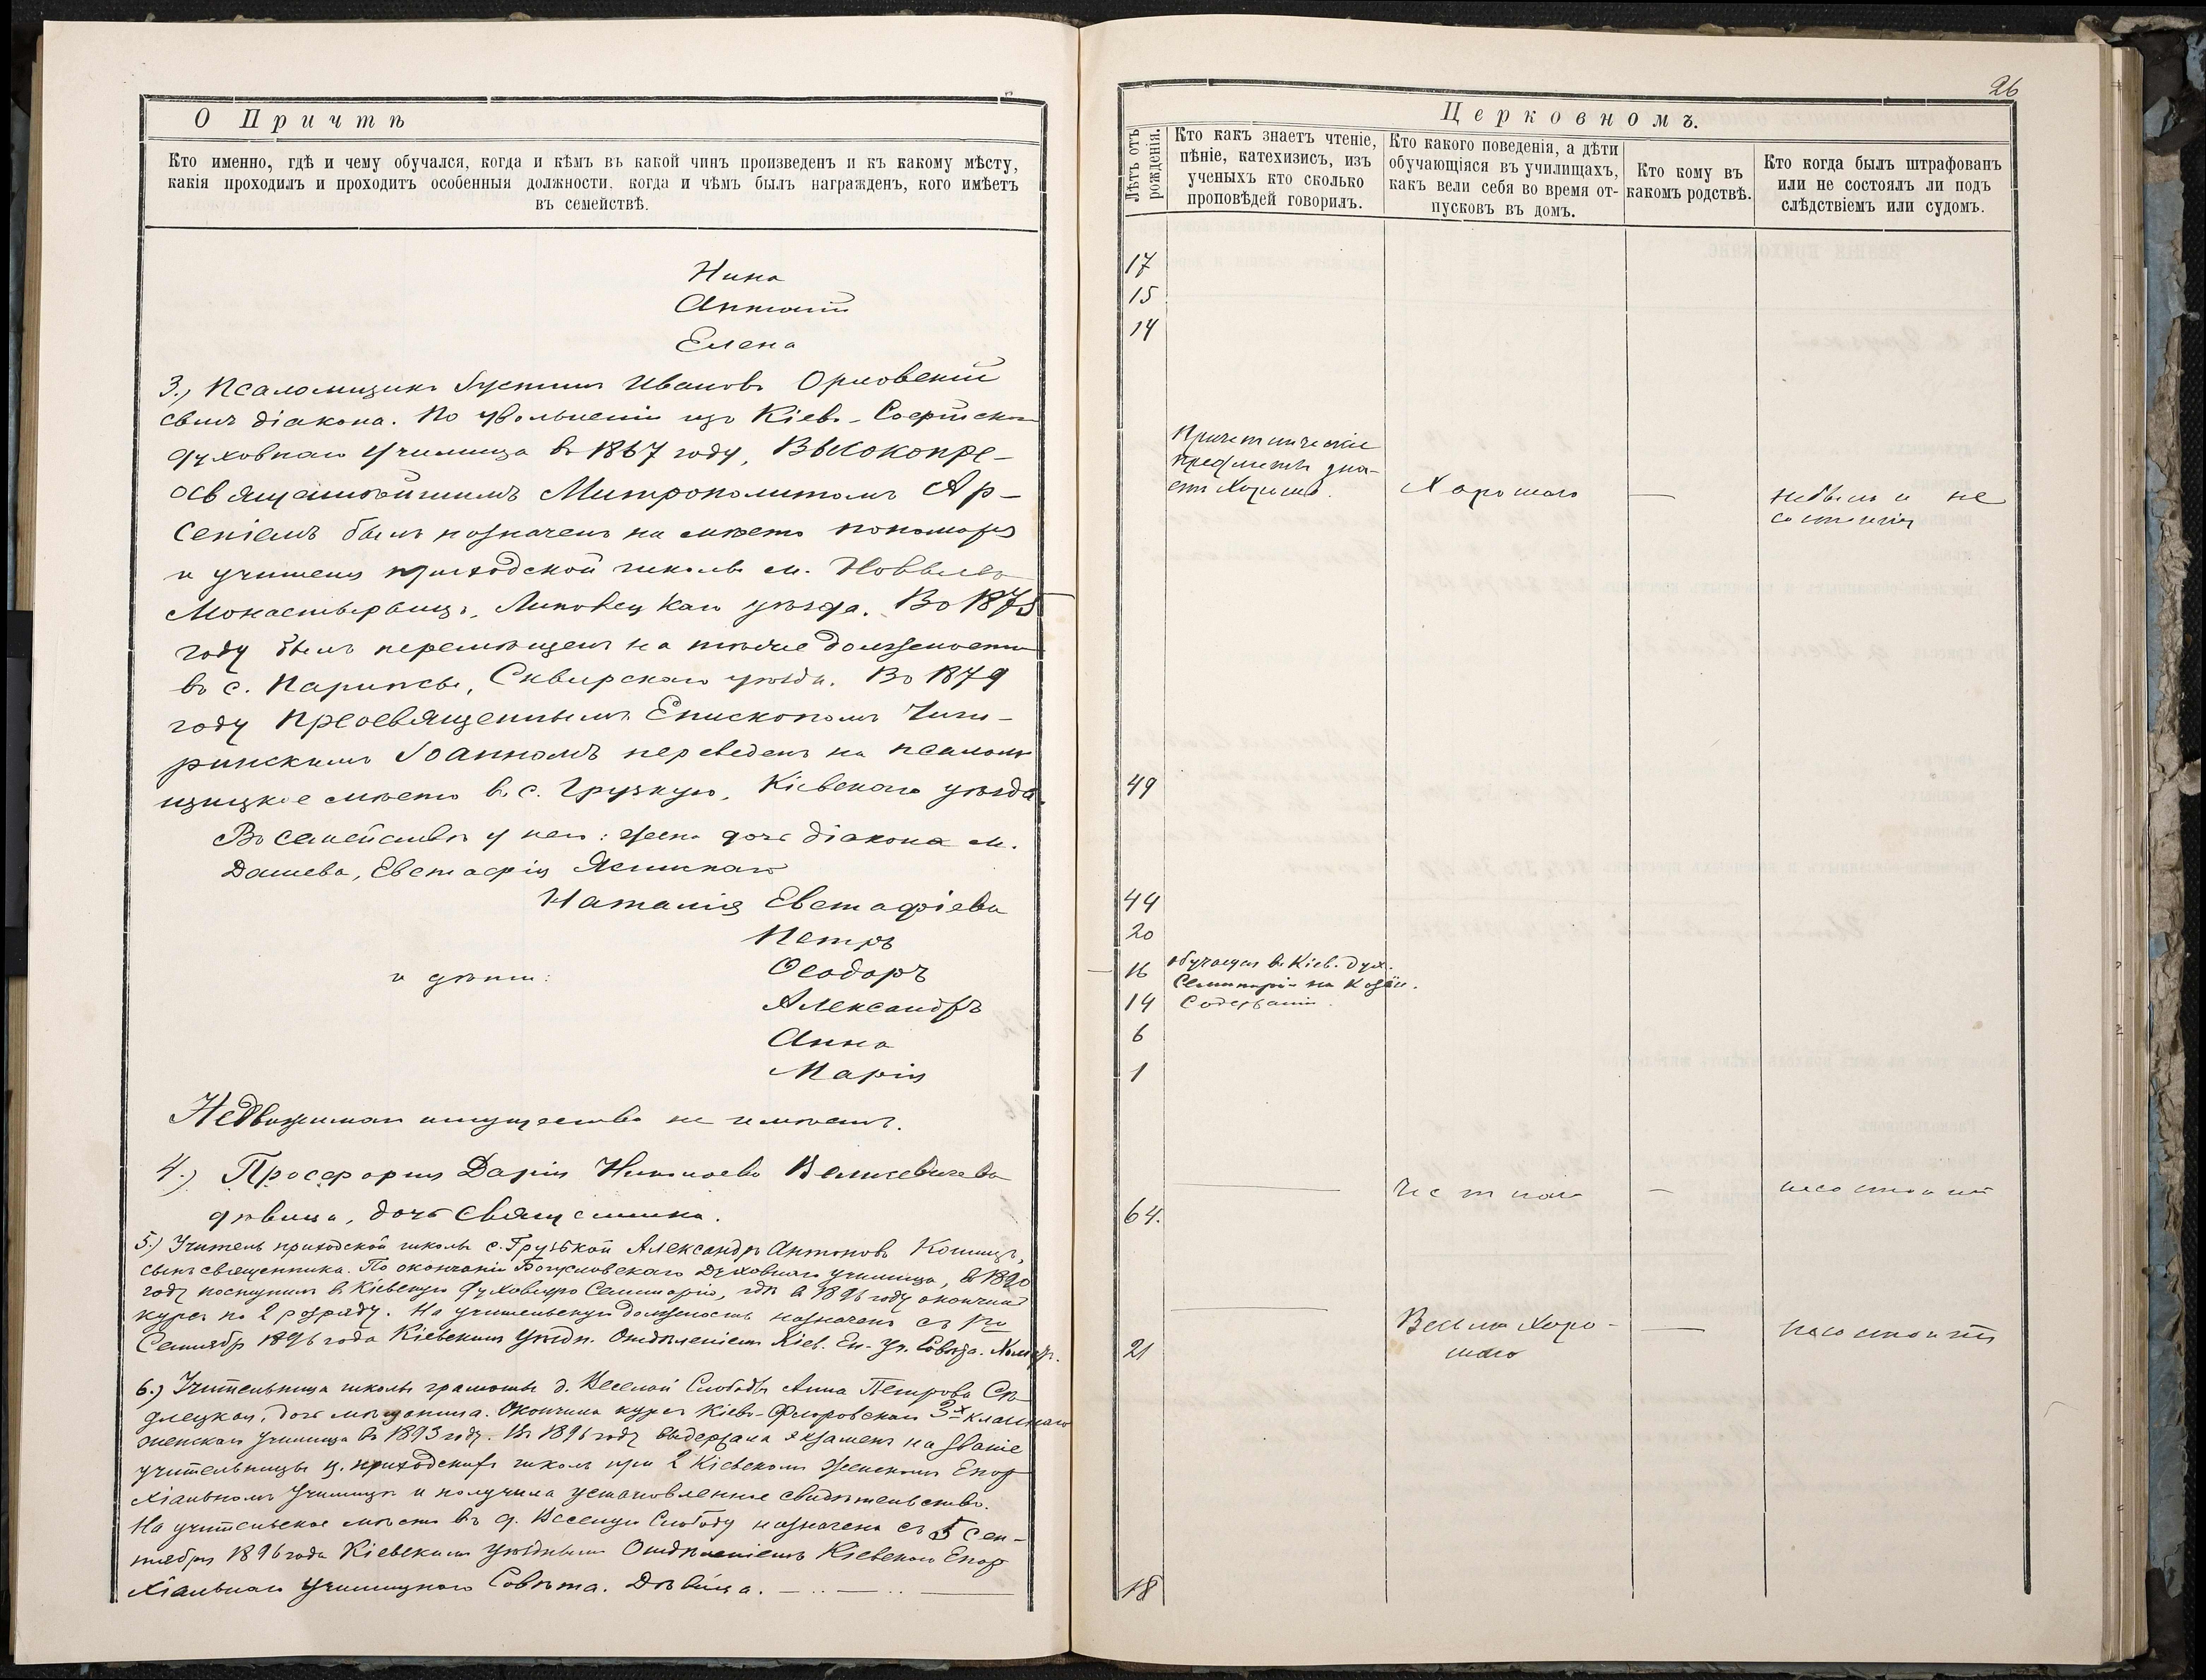 О Причтѣ
Кто именно, гдѣ и чему обучался, когда и кѣмъ въ какой чинъ произведенъ и къ какому мѣсту,
какія проходилъ и проходитъ особенныя должности, когда и чѣмъ былъ награжденъ, кого имѣетъ
въ семействѣ.
Нина
Антоній
Елена
3., Псаломщикъ Іустинъ Ивановъ Орловскій
сынъ діакона. По увольненіи изъ Кіево-Софійскаго
духовнаго училища въ 1867 году, Высокопре-
освященнѣйшимъ Митрополитомъ Ар-
сеніемъ былъ назначенъ на мѣсто пономаря
и учителя приходской школы м.
Монастырищъ, Липовецкаго уѣзда. Въ 1875
году былъ перемѣщенъ на таковые должности
въ с. Парипсы, Сквирскаго уѣзда. Въ 1879
году Преосвященнымъ Епископомъ Чиги-
ринскимъ Іоанномъ переведенъ на псалом-
щицкое мѣсто въ с. Грузкую, Кіевскаго уѣзда.
Въ семействѣ у него: жена дочь діакона м.
Дашева, Евстафія
Наталія Евстафіева
Петръ
и дѣти: Ѳеодоръ
Александръ
Анна
Марія
Недвижимаго имущества не имѣетъ.
4.) Просфорня Дарія Николаева Величкевичева
дѣвица, дочь священника.
5.) Учитель приходской школы с. Грузкой Александръ Антоновъ Кошицъ,
сынъ священника. По окончаніи Богуславскаго Духовнаго училища, въ 1890
году поступилъ въ Кіевскую Духовную Семинарію, гдѣ въ 1896 году окончилъ
курсъ по 2 разряду. На учительскую должность назначенъ съ 1го
Сентября 1896 года Кіевскимъ Уѣздн. Отдѣленіемъ Кіев. Еп. Уч. Совѣта. Холостъ.
6.) Учительница школы грамоты д. Веселой Слободы Анна Петрова Сѣ-
длецкая, дочь мѣщанина. Окончила курсъ Кіево-Флоровскаго 3х класснаго
женскаго Училища въ 1893 году. Въ 1896 году выдержала экзаменъ на званіе
учительницы ц. приходскихъ школъ при 2 Кіевскомъ женскомъ Епар-
хіальномъ Училищѣ и получила установленное свидѣтельство.
На учительское мѣсто въ д. Веселую Слободу назначена съ 5 Сен-
тября 1896 года Кіевскимъ Уѣзднымъ Отдѣленіемъ Кіевскаго Епар-
хіальнаго Училищнаго Совѣта. Дѣвица.
26
Церковномъ.
Лѣтъ отъ рожденія.
Кто какъ знаетъ чтеніе,
пѣніе, катехизисъ, изъ
ученыхъ кто сколько
проповѣдей говорилъ.
Кто какого поведенія, а дѣти
обучающіяся въ училищахъ,
какъ вели себя во время от-
пусковъ въ домъ.
Кто кому въ
какомъ родствѣ.
Кто когда былъ штрафованъ
или не состоялъ ли подъ
слѣдствіемъ или судомъ.
17
15
14
Причетническіе
предметы зна-
етъ хорошо.
Хорошаго
—
не былъ и не
состоитъ
49
44
20
16 обучается въ Кіев. Дух.
Семинаріи на казён.
14 содержаніи.
6
1
— Честнаго — не состоитъ
64.
— Весьма хоро-
шаго — не состоитъ
21
18